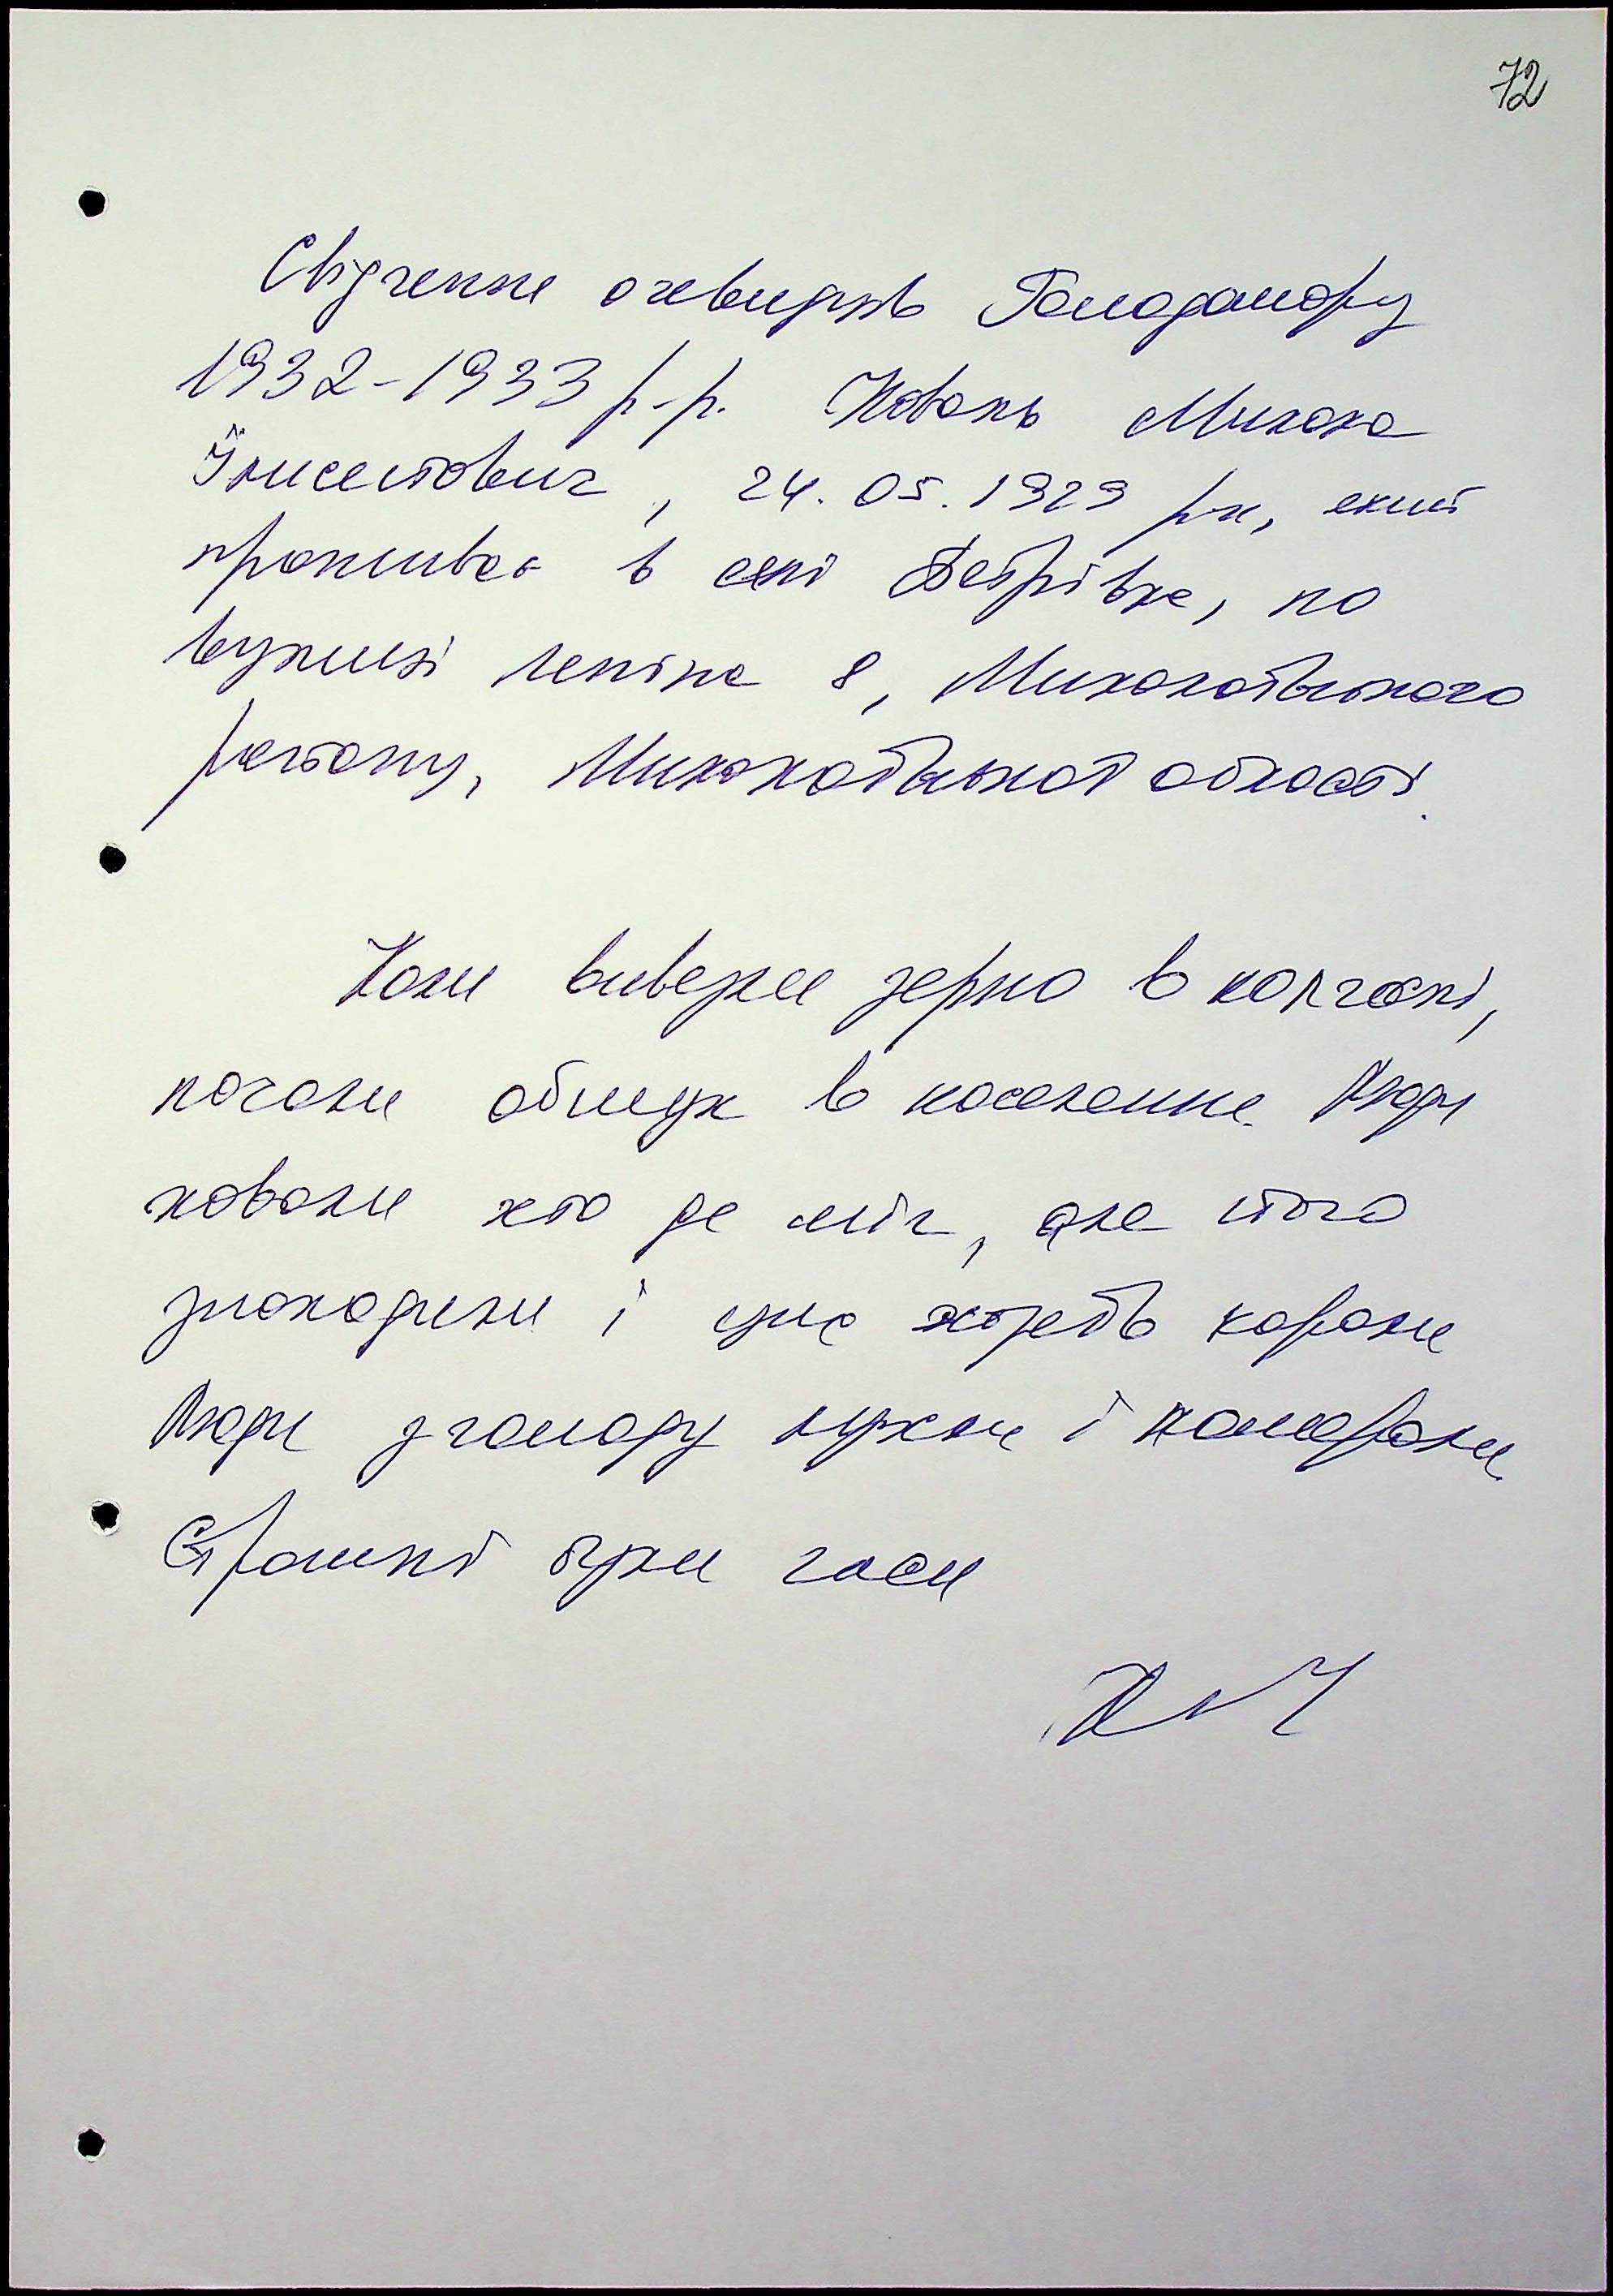 72
Свідчення очевидців Голодомору
1932-1933 р-р. Коваль Микола
24.05.1929 р-н, який
проживає в селі Петрівка, по
вулиці Леніна 8, Миколаївського
району, Миколаївської області.
Коли вивезли зерно в колгоспі,
почали обшук в населення. Люди
ховали хто де міг, але його
знаходили і карали
Люди з голоду пухли і помирали
Страшні були часи